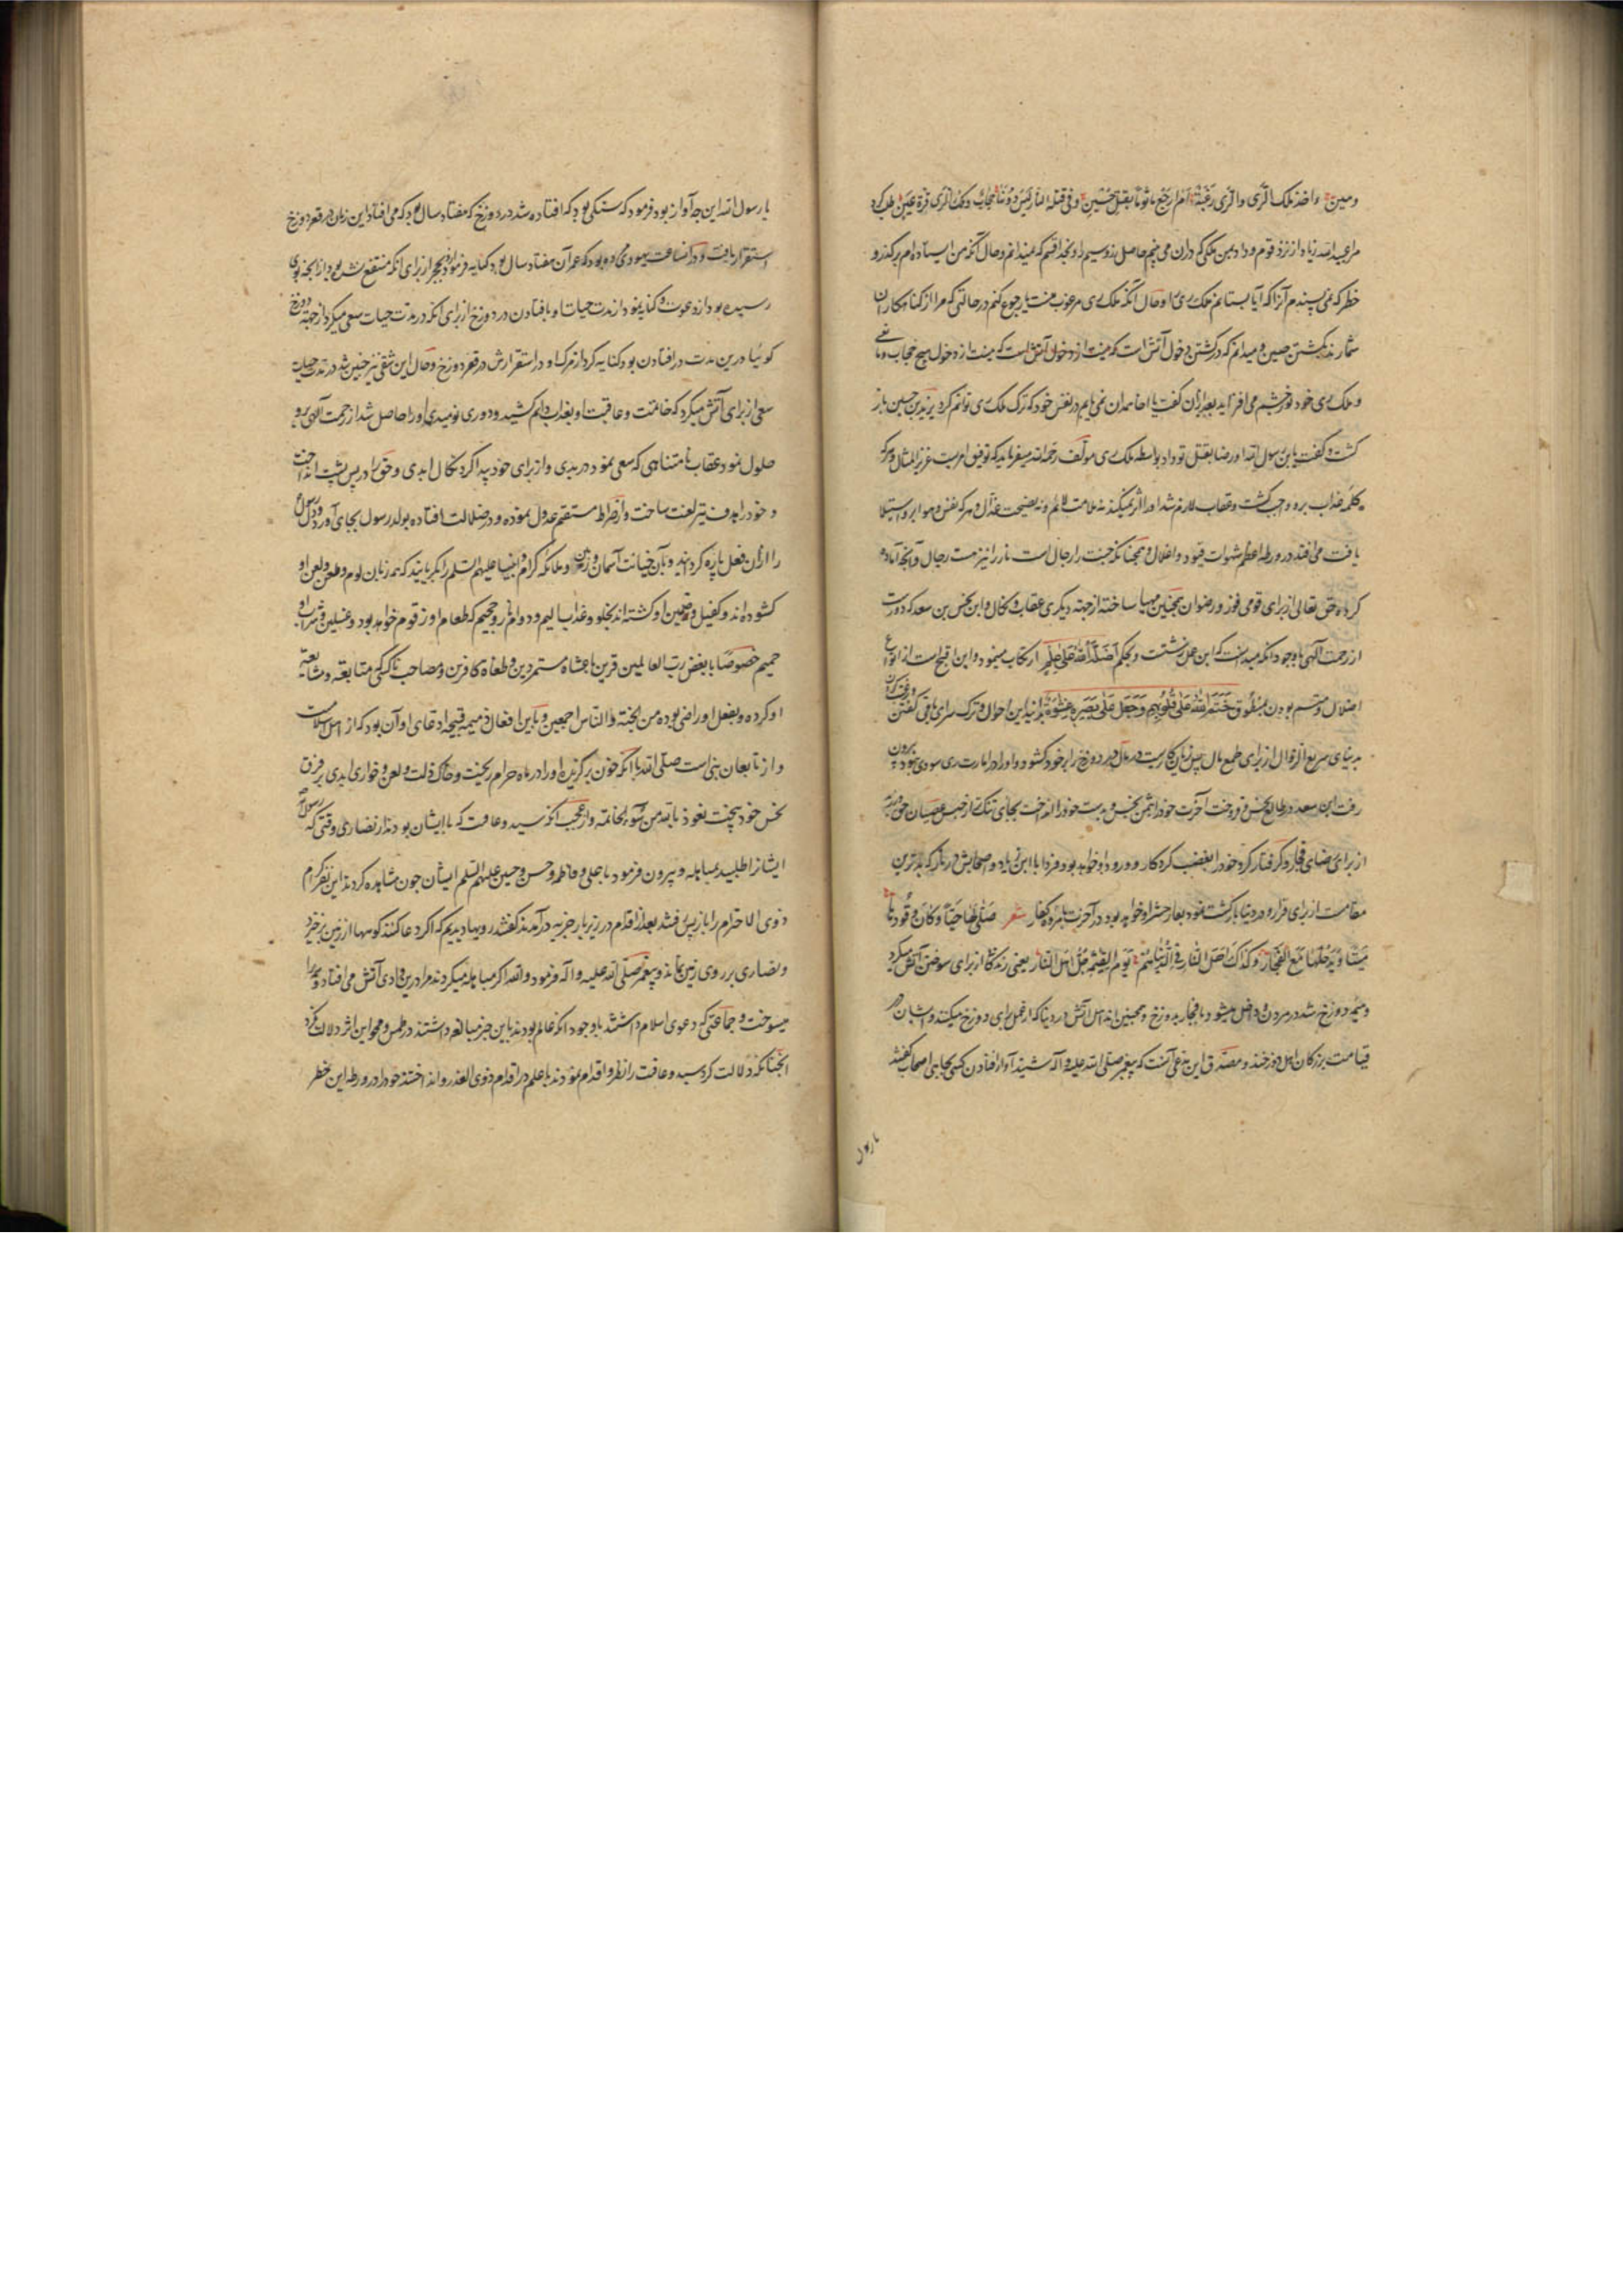 ومین واخذ ملک الری والری رغبة ام ارجع ماثوما بقتل حسین وفی قتله النار لیس دونها حجاب وملک الری قرة عین طلب کرد
مرا عبیدالله زیاد از نزد قوم و داد بمن ملکی که در آن می بینم حاصل نمیدانم و حال آنکه من ایستاده ام بر
خطر که نمی پسندم آنرا که آیا بستانم ملک ری را و حال آنکه ملک ری مرغوب منست یا رجوع کنم در حالتی که مرا از کناهکاران
شمارند بکشتن حسین و میدانم که در کشتن او دخول آتش است که نیست از دخول هیچ حجاب و مانعی
و ملک ری خود نور چشم می افزاید بعد از آن گفت یا اخا همدان نمی یابم در نفس خود که ترک ملک ری توانم کرد یزید بن حصین باز
کشت و گفت یا بن رسول الله او رضا بقتل تو داد بواسطه ملک ری مؤلف رحمه الله میفرماید که توفیق امریست عزیز المثال و هرکه
کلمه عذاب برو واجب کشت و عقاب لازم شد او را اثر نمیکند نه ملامت لایم و نه نصیحت عذال و هر که نفس و هوا برو استیلا
یافت می افتد در ورطه اعظم شهوات قیود و اغلال و همچنانکه جنت را رجال است نار را نیز هست رجال و آنچه آماده
کرده حق تعالی از برای قومی فوز و رضوان همچنین مهیا ساخته از جهة دیکری عقاب و نکال و این نحس بن سعد که دور است
از رحمت الهی با وجود آنکه میدانست که این عمل زشتست و بحکم اضله الله علی علم ارتکاب مینمود و این اقبح است از انواع
اضلال و متسم بودن بمنطوق ختم الله علی قلوبهم وجعل علی بصره غشوة بدانید این احوال و ترک سرای باقی گفتن و رغبت کردن
بدنیای سریع الزوال از برای طمع مال پس زیان کاریست در مآل و در دوزخ را بر خود کشود و او را در امارت ری سودی نبود بیرون
رفت ابن سعد در طالع نحس و فروخت آخرت خود را بثمن بخس و بدست خود را انداخت بجای تنک از حبس عصیان حق ورزید
از برای رضای فجار و گرفتار کرد خود را بغضب کردکار و ورود او خواهد بود فردا با ابن زیاد و اصحابش در نار که بدترین
مقامست از برای قرار و در دنیا بازکشت نمود بعار حشر او خواهد بود در آخرت بزمره کفار شعر صلی لها حیا وکان وقودها
میتا ویدخلها مع الفجار وکذاک اهل النار فی الدنیا هم یوم القیمة جل اهل النار یعنی زندکانی از برای سوختن آتش میکرد
و هیمه دوزخ شد در مردن و داخل میشود با فجار بدوزخ و همچنین اند اهل آتش در دنیا که از عمل برای دوزخ میکنند و ایشان در
قیامت بزرکان اهل دوزخند و مصدق این مدعی آنست که پیغمبر صلی الله علیه و آله شنید آواز افتادن کسی بجایی اصحاب گفتند
یا رسول
یا رسول الله این چه آواز بود فرمود که سنکی بود که افتاده شد در دوزخ که هفتاد سال بود که می افتاد این زمان در قعر دوزخ
استقرار یافت و در آن ساعت یهودی مرده بود که عمر آن هفتاد سال بود کنایه فرمود از و بحجر از برای آنکه منتفع نشده بود از آنچه بوی
رسیده بود از دعوت و کنایه نمود از مدت حیات او بافتادن در دوزخ از برای آنکه در مدت حیات سعی میکرد از جهة دوزخ
کوئیا درین مدت در افتادن بود کنایه کرد از مرک او در استقرارش در قعر دوزخ و حال این شقی نیز چنین شد در مدت حیات
سعی از برای آتش میکرد که خاتمت و عاقبت او بعذاب دایم کشید و دوری و نومیدی او را حاصل شد از رحمت الهی و برو
حلول نمود عقاب نامتناهی که سعی نمود در بدی و از برای خود پیدا کرد نکال ابدی و حق را در پس پشت انداخت
و خود را هدف تیر لعنت ساخت و از صراط مستقیم عدول نموده و در ضلالت افتاده بولد رسول بجای آورد و دل رسول
را از آن فعل پاره کردانید و بآن خیانت آسمان و زمین و ملائکه کرام و انبیا علیهم السلم را بکریانید که همه زبان لوم و طعن و لعن او
کشوده اند و کفیل و ضمین او کشته اند بخلود عذاب الیم و دوام نار و جحیم که طعام او زقوم خواهد بود و غسلین و شراب او
حمیم خصوصا با بغض رب العالمین قرین باعشاه متمردین و طغاة کافرین و مصاحب ناکسی متابعة و مشایعة
او کرده و بفعل او راضی بوده من الجنة والناس اجمعین و باین افعال ذمیمه قبیحه ادعای او آن بود که از اهل اسلامست
و از تابعان نبی است صلی الله با آنکه خون برگزیده او را در ماه حرام ریخت و خاک ذلت و لعن و خواری ابدی بر فرق
نحس خود بیخت نعوذ بالله من سوء الخاتمة و از عجب آنکه سید و عاقب که با ایشان بودند از نصاری وقتی که رسول
ایشانرا طلبید بمباهله و بیرون فرمود با علی و فاطمه و حسن و حسین علیهم السلم ایشان چون مشاهده کردند این نفر کرام
ذوی الاحترام را باز پس رفتند بعد از اقدام در زیر بار جزیه در آمدند گفتند رویها دیدیم که اگر دعا کنند کوهها از زمین برخیزد
و نصاری بر روی زمین نماند و پیغمبر صلی الله علیه واله فرمود والله اکر مباهله میکردند هر آینه درین وادی آتش می افتاد و همه را
میسوخت و جماعتی که دعوی اسلام داشتند با وجود آنکه عالم بودند باین خبر مبالغه داشتند در طمس و محو این اثر دلالت نکرد
آنچنانکه دلالت کرد سید و عاقب را از نظر و اقدام نمودند با علم در اقدام ذوی الغدر و انداختند خود را در ورطه این خطر